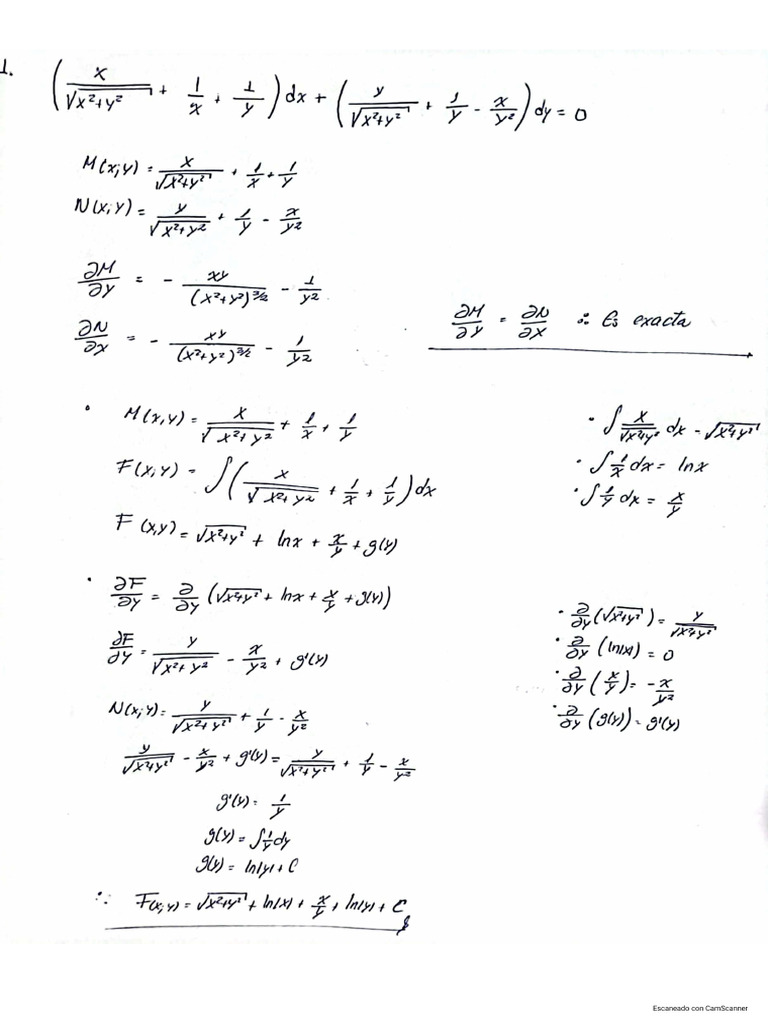 1. (x/√(x²+y²) + 1/x + 1/y) dx + (y/√(x²+y²) + 1/y - x/y²) dy = 0
M(x;y) = x/√(x²+y²) + 1/x + 1/y
N(x;y) = y/√(x²+y²) + 1/y - x/y²
∂M/∂y = - xy/(x²+y²)^3/2 - 1/y²
∂N/∂x = - xy/(x²+y²)^3/2 - 1/y²
∂M/∂y = ∂N/∂x ∴ Es exacta
• M(x,y) = x/√(x²+y²) + 1/x + 1/y
F(x;y) = ∫(x/√(x²+y²) + 1/x + 1/y) dx
F(x,y) = √(x²+y²) + lnx + x/y + g(y)
• ∫ x/√(x²+y²) dx - √(x²+y²)
• ∫ 1/x dx = lnx
• ∫ 1/y dx = x/y
• ∂F/∂y = ∂/∂y (√(x²+y²) + lnx + x/y + g(y))
∂F/∂y = y/√(x²+y²) - x/y² + g'(y)
N(x;y) = y/√(x²+y²) + 1/y - x/y²
y/√(x²+y²) - x/y² + g'(y) = y/√(x²+y²) + 1/y - x/y²
g'(y) = 1/y
g(y) = ∫ 1/y dy
g(y) = ln|y| + C
• ∂/∂y (√(x²+y²)) = y/√(x²+y²)
• ∂/∂y (ln|x|) = 0
• ∂/∂y (x/y) = -x/y²
• ∂/∂y (g(y)) = g'(y)
∴ F(x;y) = √(x²+y²) + ln|x| + x/y + ln|y| + C
Escaneado con CamScanner